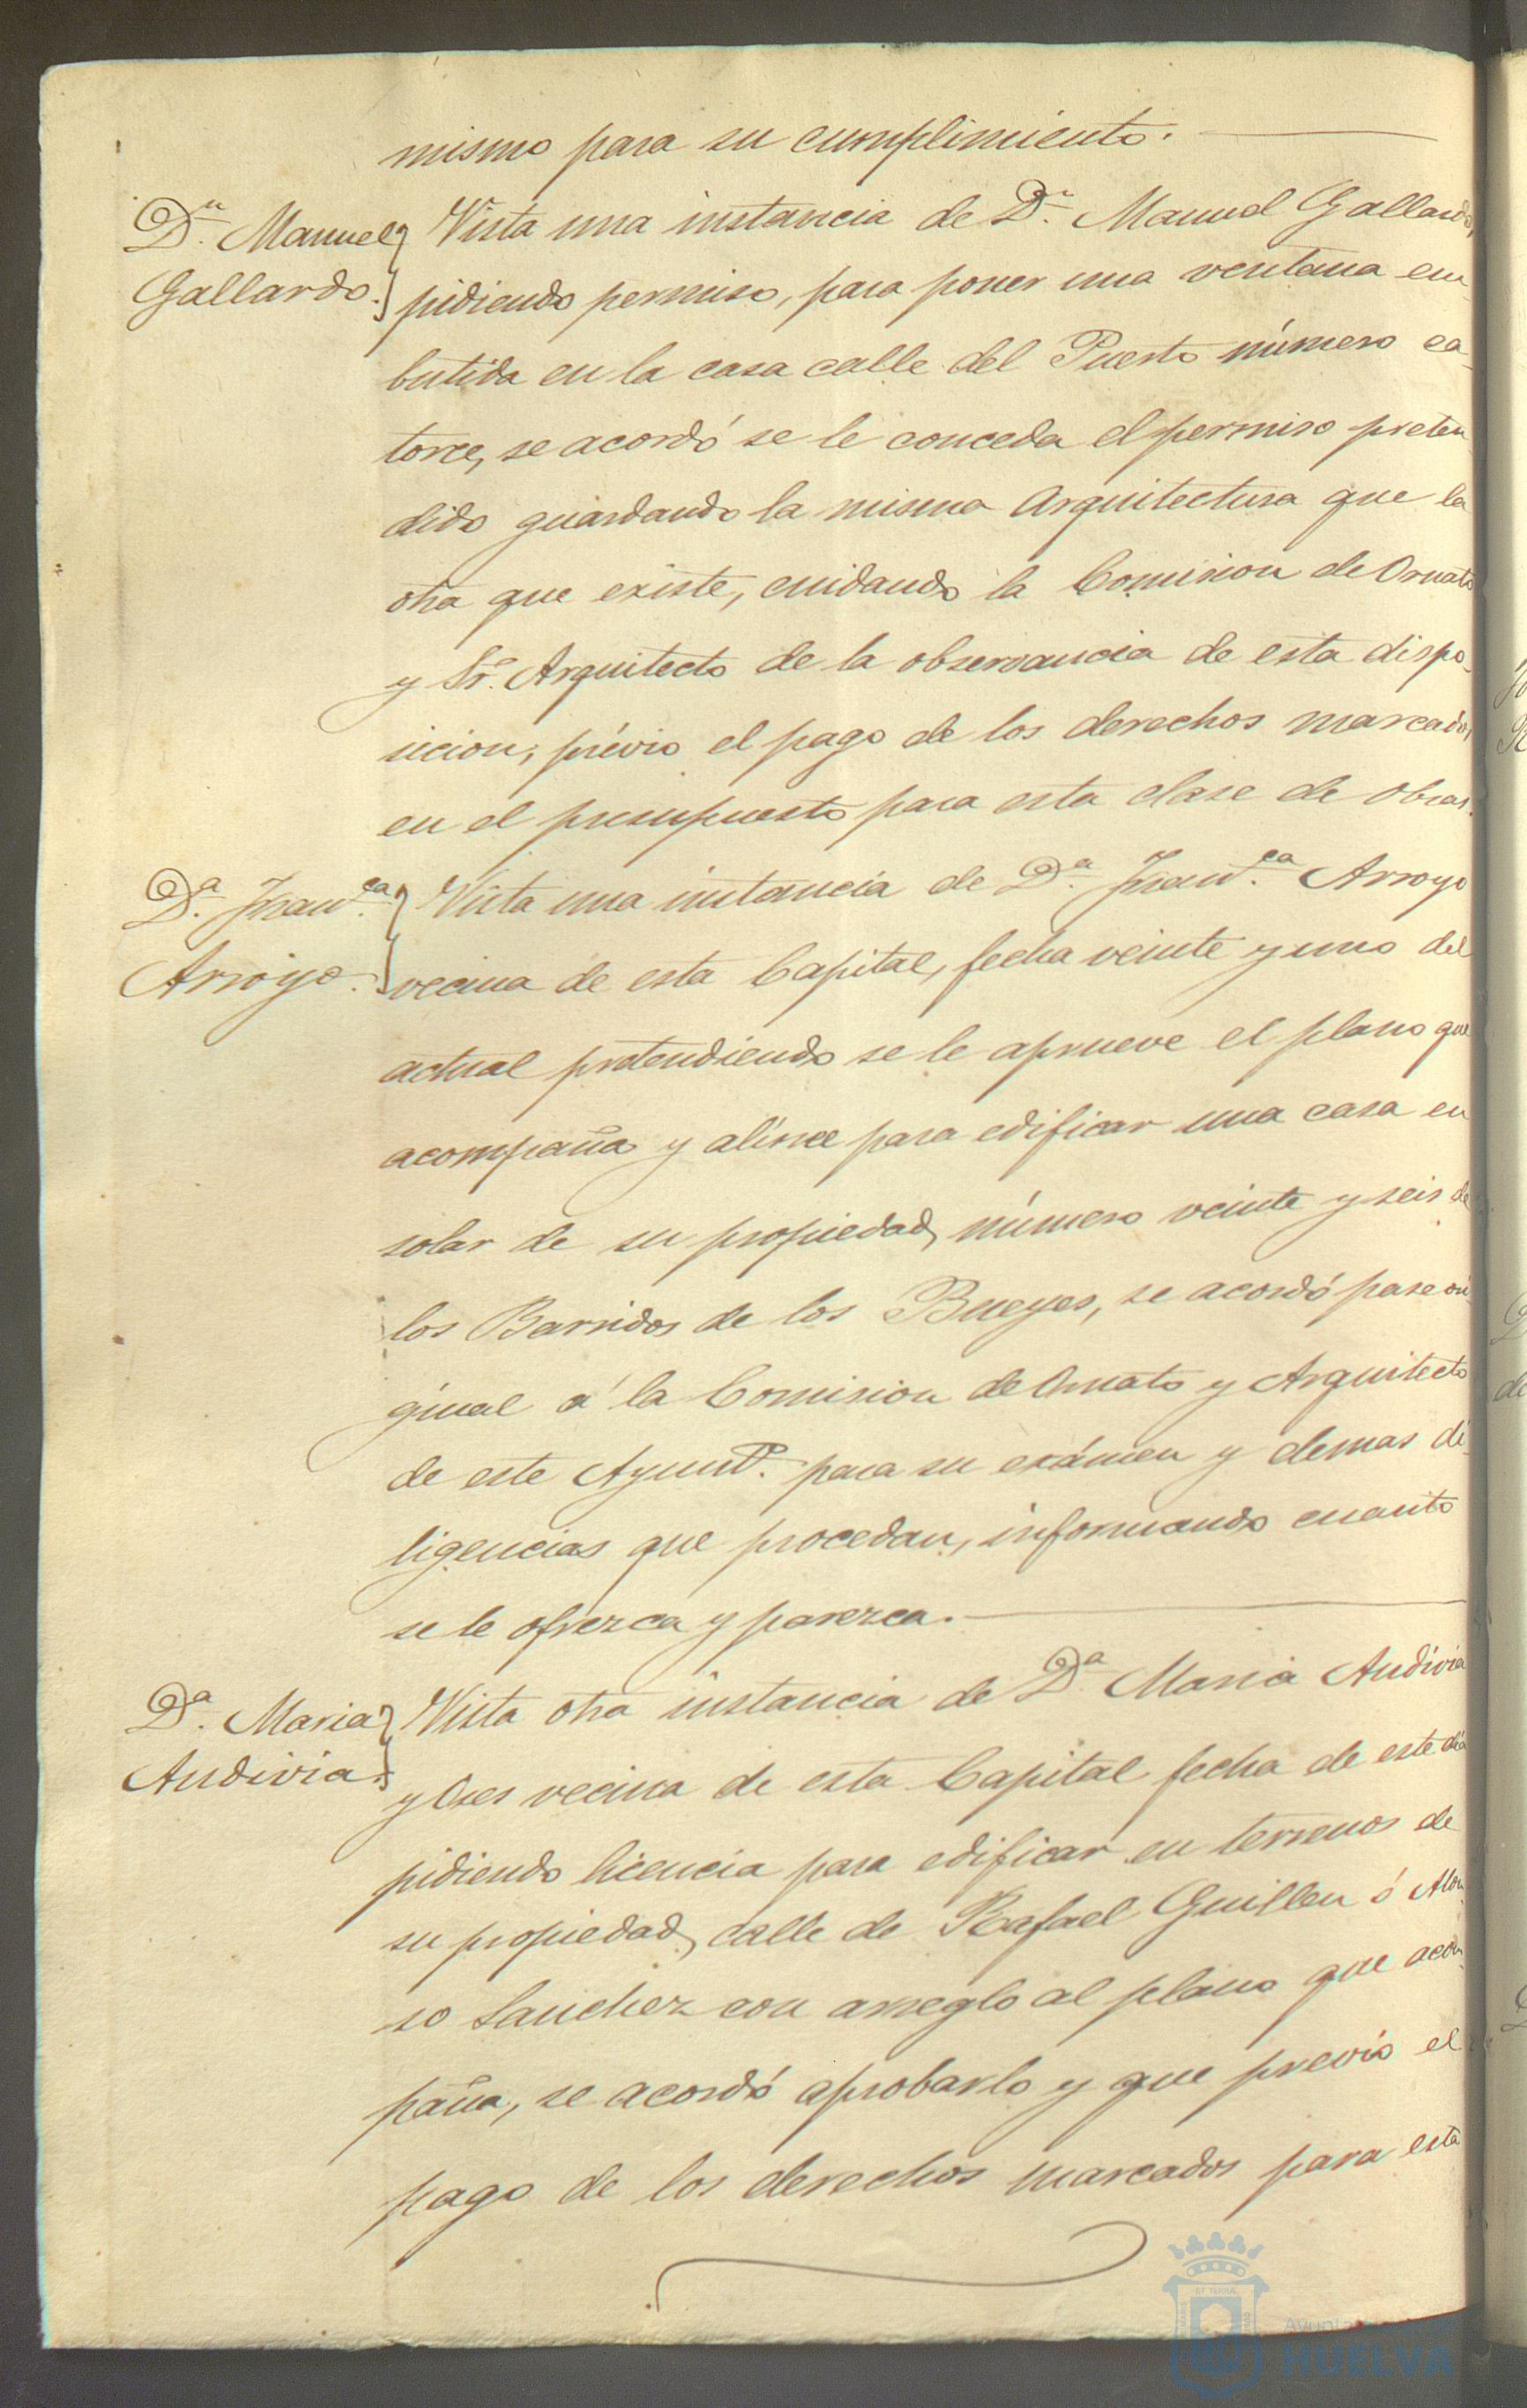 mismo para su cumplimiento.
Dn. Manuel
Gallardo.
Vista una instancia de Dn. Manuel Gallardo,
pidiendo permiso, para poner una ventana em-
butida en la casa calle del Puerto número ca-
torce, se acordó se le conceda el permiso preten-
dido guardando la misma Arquitectura que la
otra que existe, cuidando la Comision de Ornato
y Sr. Arquitecto de la observancia de esta dispo-
sicion, prévio el pago de los derechos marcados,
en el presupuesto para esta clase de obras.
Da. Franca.
Arroyo.
Vista una instancia de Da. Franca. Arroyo
vecina de esta Capital, fecha veinte y uno del
actual pretendiendo se le aprueve el plano que
acompaña y alinee para edificar una casa en
solar de su propiedad, número veinte y seis de
los Barridos de los Bueyes, se acordó pase ori-
ginal á la Comision de Ornato y Arquitecto
de este Ayunto. para su exámen y demas di-
ligencias que procedan, informando cuanto
se le ofrezca y parezca.
Da. Maria
Andivia.
Vista otra instancia de Da. Maria Andivia
y Oses vecina de esta Capital fecha de este dia
pidiendo licencia para edificar en terrenos de
su propiedad, calle de Rafael Guillen ó Alon-
so Sanchez con arreglo al plano que acom-
paña, se acordó aprobarlo y que previo el
pago de los derechos marcados para esta
HUELVA